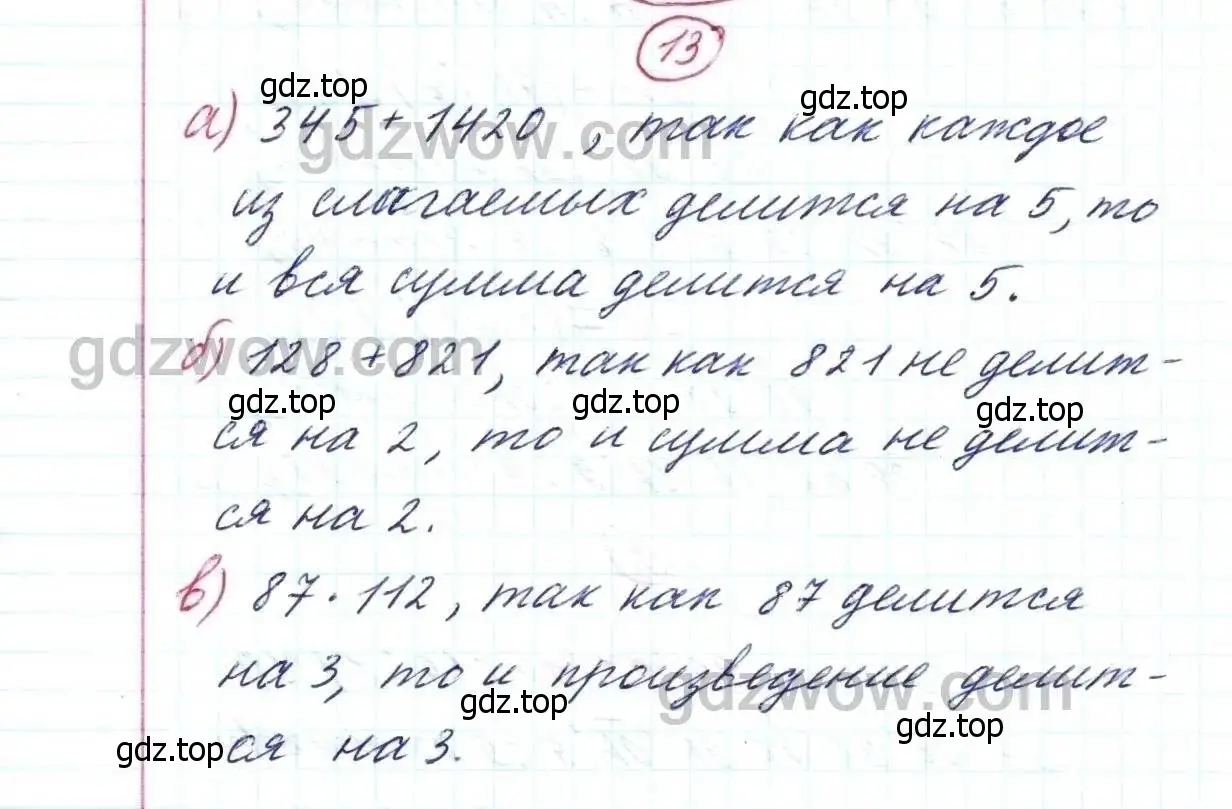 13
gdz.top gdz.top
а) 345 + 1420, так как каждое
gdzwow.com
из слагаемых делится на 5, то
и вся сумма делится на 5.
gdzwow.com
б) 128 + 821, так как 821 не делит-
gdz.top gdz.top gdz.top
ся на 2, то и сумма не делит-
ся на 2.
в) 87 · 112, так как 87 делится
на 3, то и произведение делит-
gdz.top gdzwow.com
gdz.top gdz.top
ся на 3.